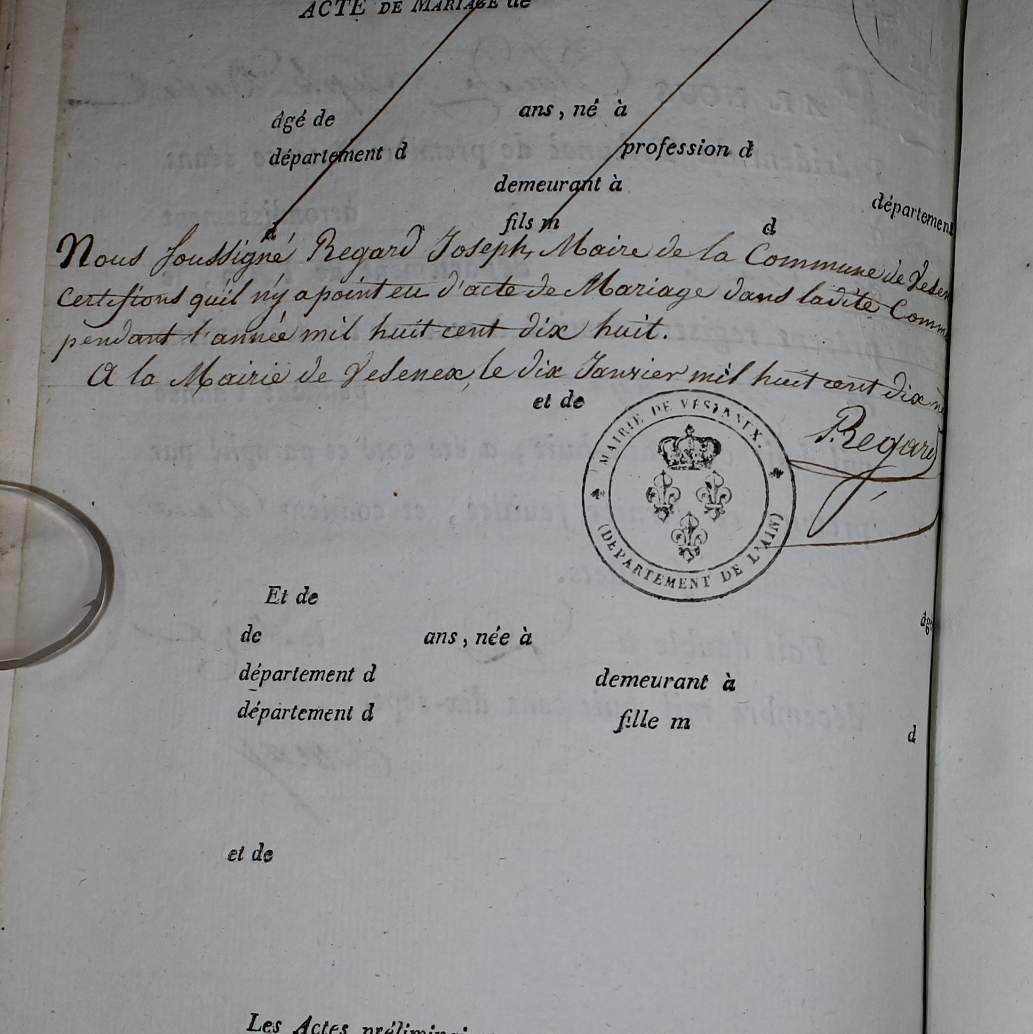 ACTE DE MARIAGE de
âgé de ans, né à
département d profession d
demeurant à
département
fils m d
Nous soussigné Regard Joseph, Maire de la Commune de Vesen
certifions qu'il n'y a point eu d'acte de Mariage dans ladite Comm
pendant l'année mil huit cent dix huit.
A la Mairie de Vesenex, le dix Janvier mil huit cent dix n
et de
Regard
MAIRIE DE VÉSENEX.
(DÉPARTEMENT DE L'AIN)
Et de
âgé
de ans, née à
département d demeurant à
département d fille m d
et de
Les Actes prélimin